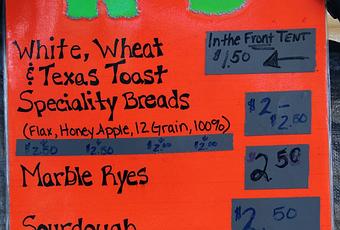 White, Wheat
& Texas Toast
In the Front TENT
$1.50
Speciality Breads
$2 -
$2.50
(Flax, Honey Apple, 12 Grain, 100%)
$2.50 $2.50
Marble Ryes
$2.50
Sourdough
$2.50